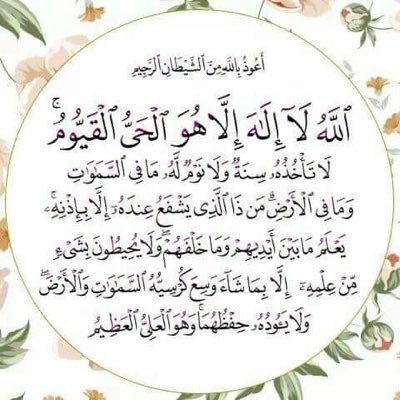 أَعُوذُ بِاللَّهِ مِنَ ٱلشَّيْطَانِ ٱلرَّجِيمِ
ٱللَّهُ لَآ إِلَٰهَ إِلَّا هُوَ ٱلْحَىُّ ٱلْقَيُّومُ ۚ
لَا تَأْخُذُهُۥ سِنَةٌ وَلَا نَوْمٌ لَّهُۥ مَا فِى ٱلسَّمَٰوَٰتِ
وَمَا فِى ٱلْأَرْضِ ۗ مَن ذَا ٱلَّذِى يَشْفَعُ عِندَهُۥٓ إِلَّا بِإِذْنِهِۦ ۚ
يَعْلَمُ مَا بَيْنَ أَيْدِيهِمْ وَمَا خَلْفَهُمْ ۖ وَلَا يُحِيطُونَ بِشَىْءٍ
مِّنْ عِلْمِهِۦٓ إِلَّا بِمَا شَآءَ وَسِعَ كُرْسِيُّهُ ٱلسَّمَٰوَٰتِ وَٱلْأَرْضَ ۖ
وَلَا يَـُٔودُهُۥ حِفْظُهُمَا ۚ وَهُوَ ٱلْعَلِىُّ ٱلْعَظِيمُ